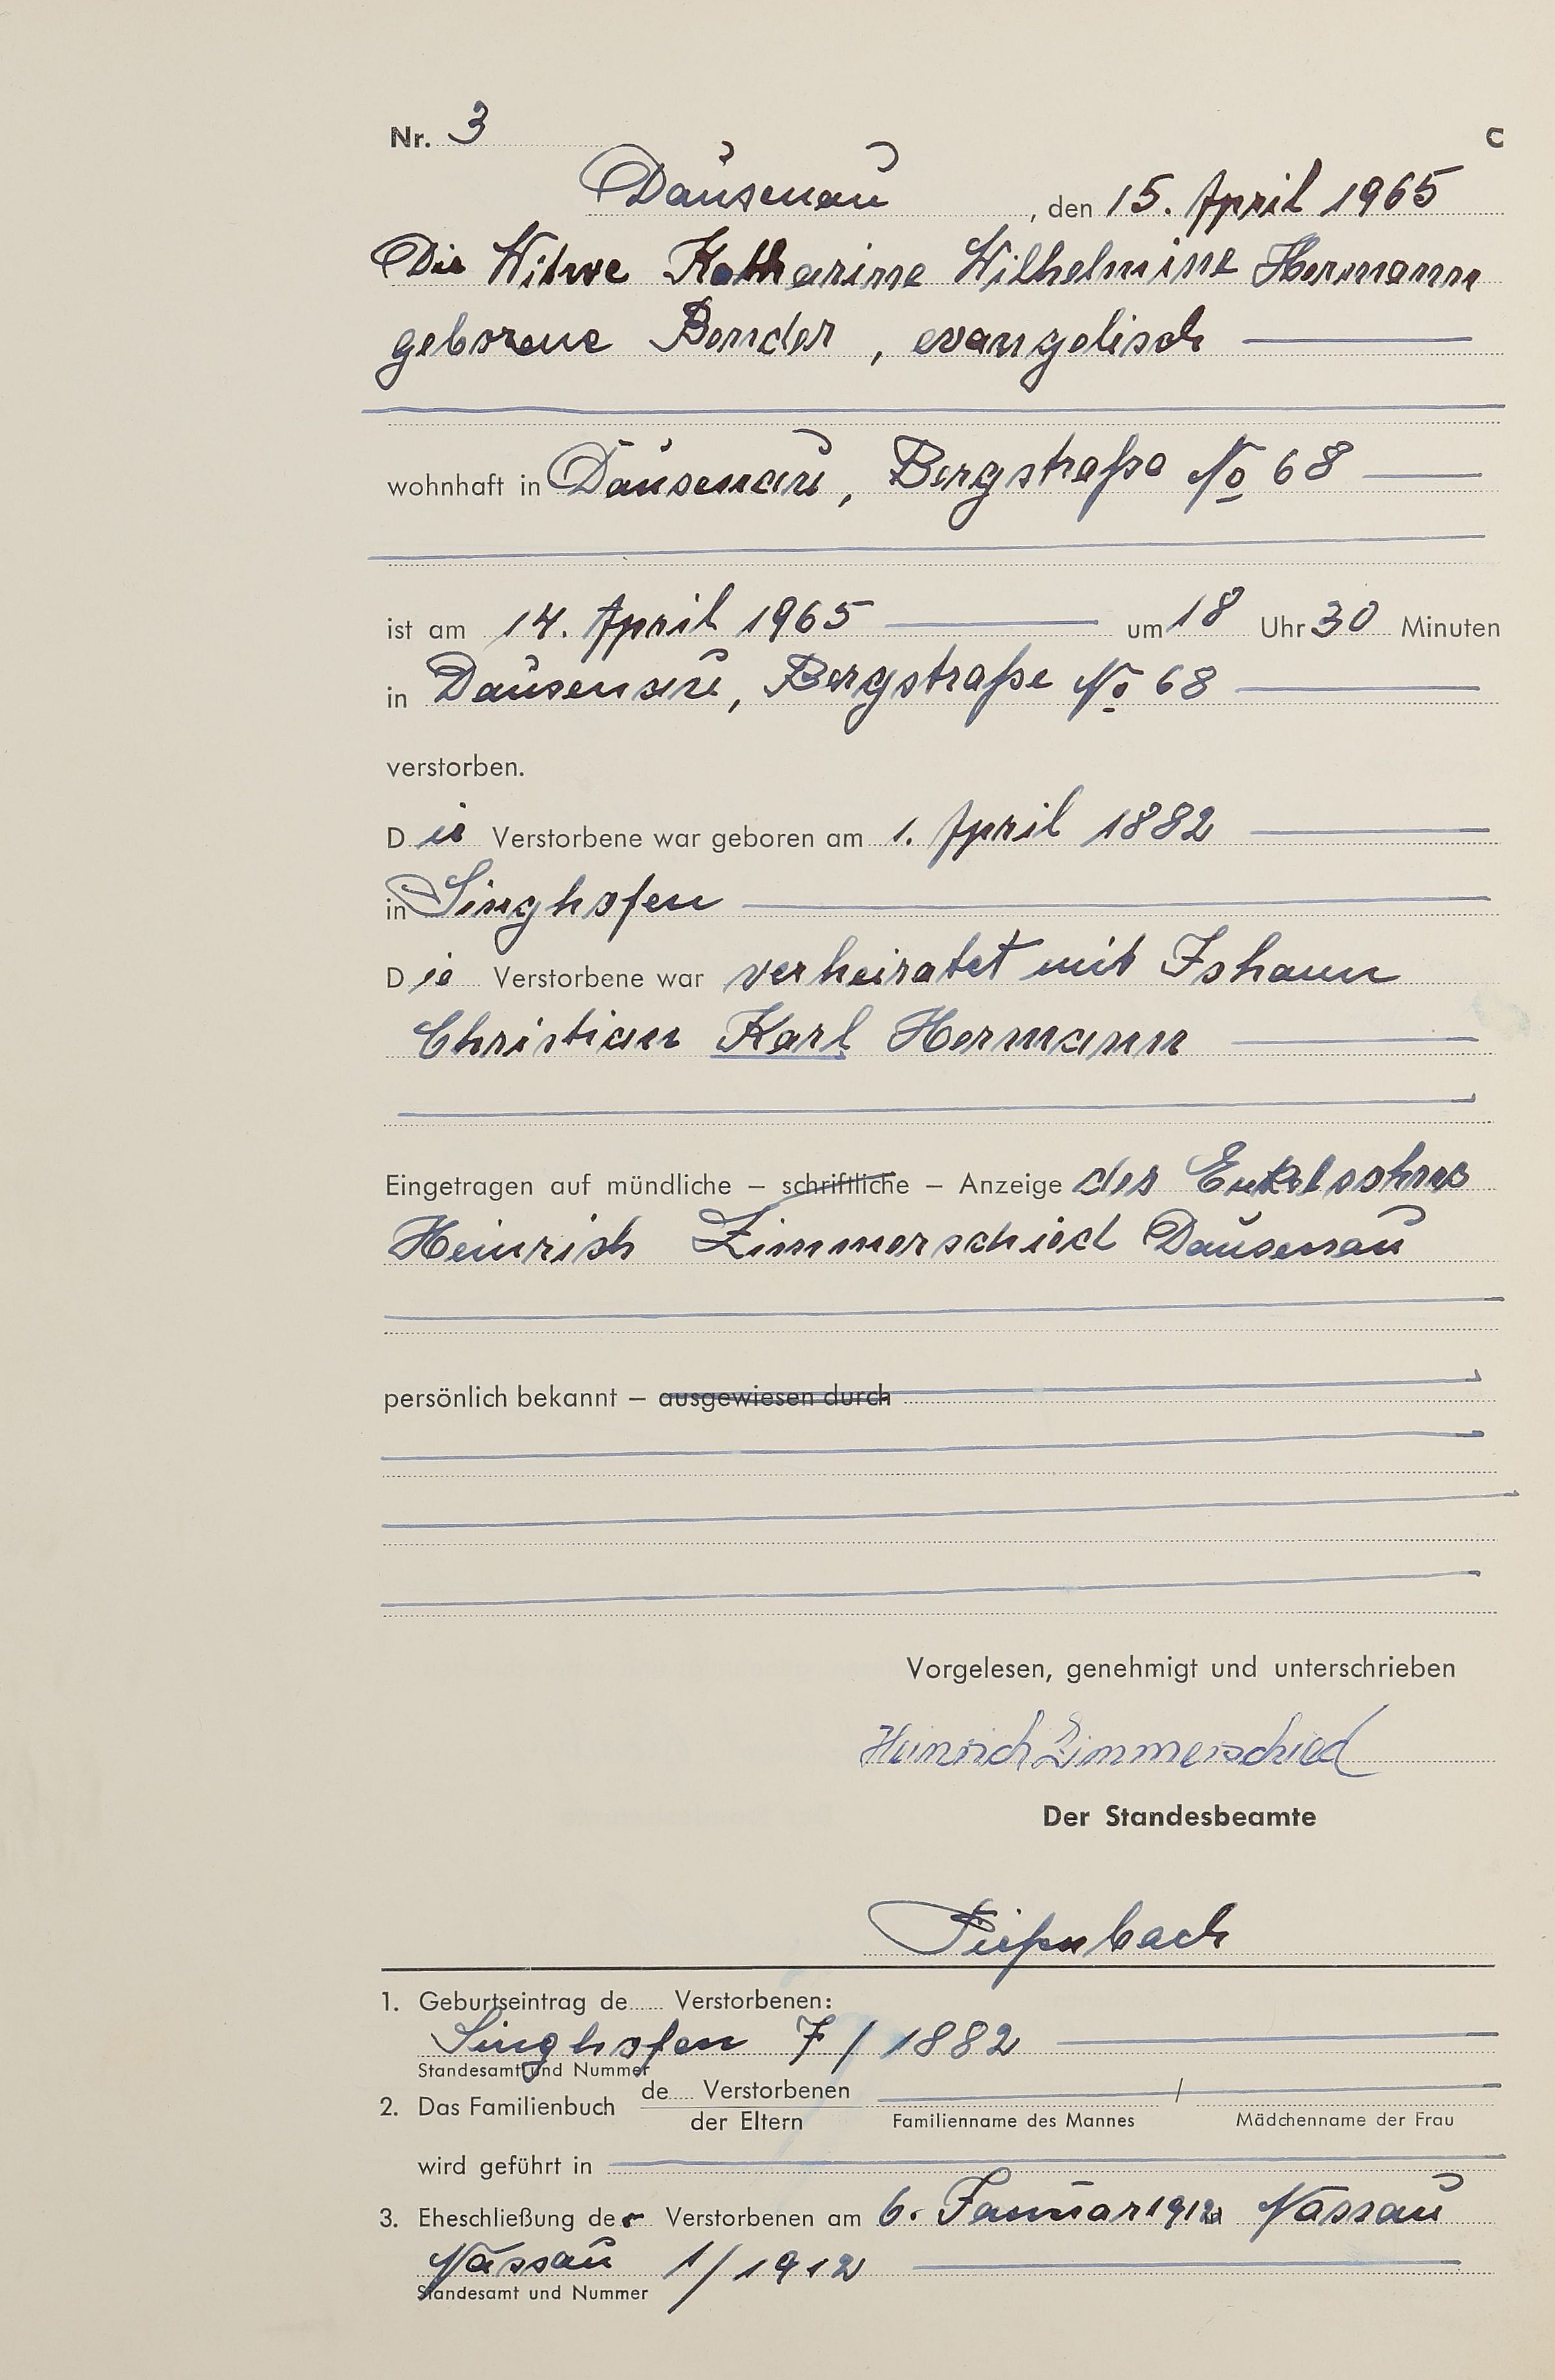 Nr. 3 C
Dausenau, den 15. April 1965
Die Witwe Katharine Wilhelmine Hermann
geborene Bender, evangelisch
wohnhaft in Dausenau, Bergstraße No 68
ist am 14. April 1965 um 18 Uhr 30 Minuten
in Dausenau, Bergstraße No 68
verstorben.
Die Verstorbene war geboren am 1. April 1882
in Singhofen
Die Verstorbene war verheiratet mit Johann
Christian Karl Hermann
Eingetragen auf mündliche – schriftliche – Anzeige des Enkelsohnes
Heinrich Zimmerschied Dausenau
persönlich bekannt – ausgewiesen durch
Vorgelesen, genehmigt und unterschrieben
Heinrich Zimmerschied
Der Standesbeamte
1. Geburtseintrag de Verstorbenen:
Singhofen 7/1882
Standesamt und Nummer
2. Das Familienbuch de Verstorbenen /
der Eltern Familienname des Mannes Mädchenname der Frau
wird geführt in
3. Eheschließung der Verstorbenen am 6. Januar 1912 in Nassau
Nassau 1/1912
Standesamt und Nummer